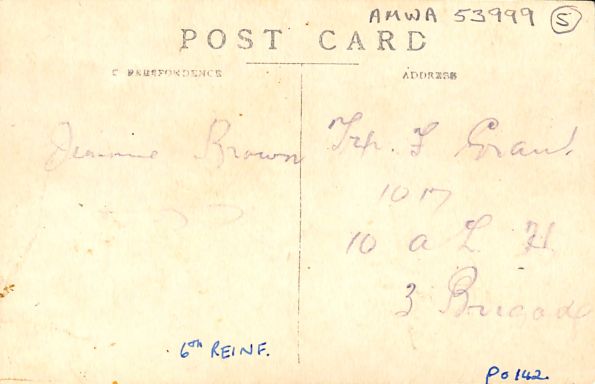 AMWA 53999 S
POST CARD
CORRESPONDENCE
ADDRESS
Brown
Trp. F Grant
1017
10 a L H
3 Brigade
6th REINF.
Po142